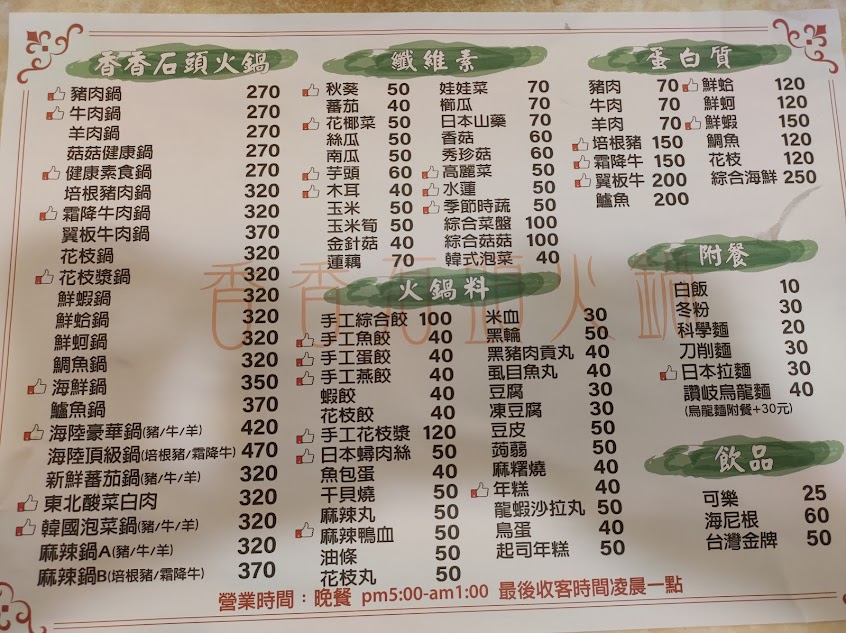 香香石頭火鍋
豬肉鍋 270
牛肉鍋 270
羊肉鍋 270
菇菇健康鍋 270
健康素食鍋 270
培根豬肉鍋 320
霜降牛肉鍋 320
翼板牛肉鍋 370
花枝鍋 320
花枝漿鍋 320
鮮蝦鍋 320
鮮蛤鍋 320
鮮蚵鍋 320
鯛魚鍋 320
海鮮鍋 350
鱸魚鍋 370
海陸豪華鍋(豬/牛/羊) 420
海陸頂級鍋(培根豬/霜降牛) 470
新鮮蕃茄鍋(豬/牛/羊) 320
東北酸菜白肉 320
韓國泡菜鍋(豬/牛/羊) 320
麻辣鍋A(豬/牛/羊) 320
麻辣鍋B(培根豬/霜降牛) 370
纖維素
秋葵 50
蕃茄 40
花椰菜 50
絲瓜 50
南瓜 50
芋頭 60
木耳 40
玉米 50
玉米筍 50
金針菇 40
蓮藕 70
娃娃菜 70
櫛瓜 70
日本山藥 70
香菇 60
秀珍菇 60
高麗菜 50
水蓮 50
季節時蔬 50
綜合菜盤 100
綜合菇菇 100
韓式泡菜 40
蛋白質
豬肉 70
牛肉 70
羊肉 70
培根豬 150
霜降牛 150
翼板牛 200
鱸魚 200
鮮蛤 120
鮮蚵 120
鮮蝦 150
鯛魚 120
花枝 120
綜合海鮮 250
火鍋料
手工綜合餃 100
手工魚餃 40
手工蛋餃 40
手工燕餃 40
蝦餃 40
花枝餃 40
手工花枝漿 120
日本蟳肉絲 50
魚包蛋 40
干貝燒 50
麻辣丸 50
麻辣鴨血 50
油條 50
花枝丸 50
米血 30
黑輪 50
黑豬肉貢丸 40
虱目魚丸 40
豆腐 30
凍豆腐 30
豆皮 50
蒟蒻 50
麻糬燒 40
年糕 40
龍蝦沙拉丸 50
鳥蛋 40
起司年糕 50
附餐
白飯 10
冬粉 30
科學麵 20
刀削麵 30
日本拉麵 30
讚岐烏龍麵 40
(烏龍麵附餐+30元)
飲品
可樂 25
海尼根 60
台灣金牌 50
香香石頭火鍋
營業時間：晚餐 pm5:00-am1:00 最後收客時間凌晨一點